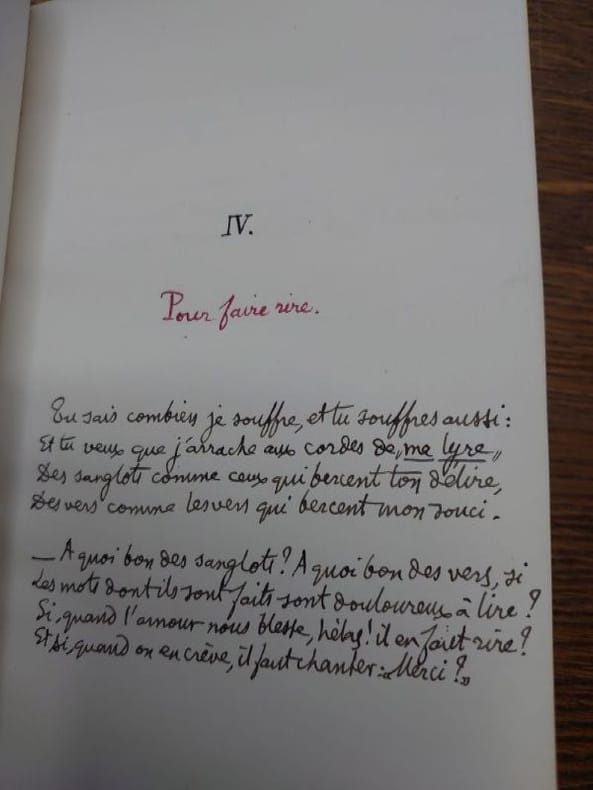 IV.
Pour faire rire.
Tu sais combien je souffre, et tu souffres aussi :
Et tu veux que j'arrache aux cordes de „ma lyre„
Des sanglots comme ceux qui bercent ton délire,
Des vers comme les vers qui bercent mon souci.
— A quoi bon des sanglots ? A quoi bon des vers, si
Les mots dont ils sont faits sont douloureux à lire ?
Si, quand l'amour nous blesse, hélas ! il en faut rire ?
Et si, quand on en crève, il faut chanter : „Merci ?„